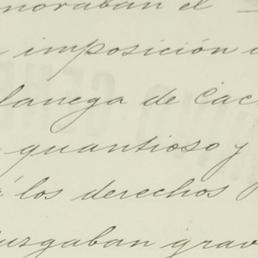 noraban el
imposición
fanega de Cac
quantioso y
los derechos
urgaban grav